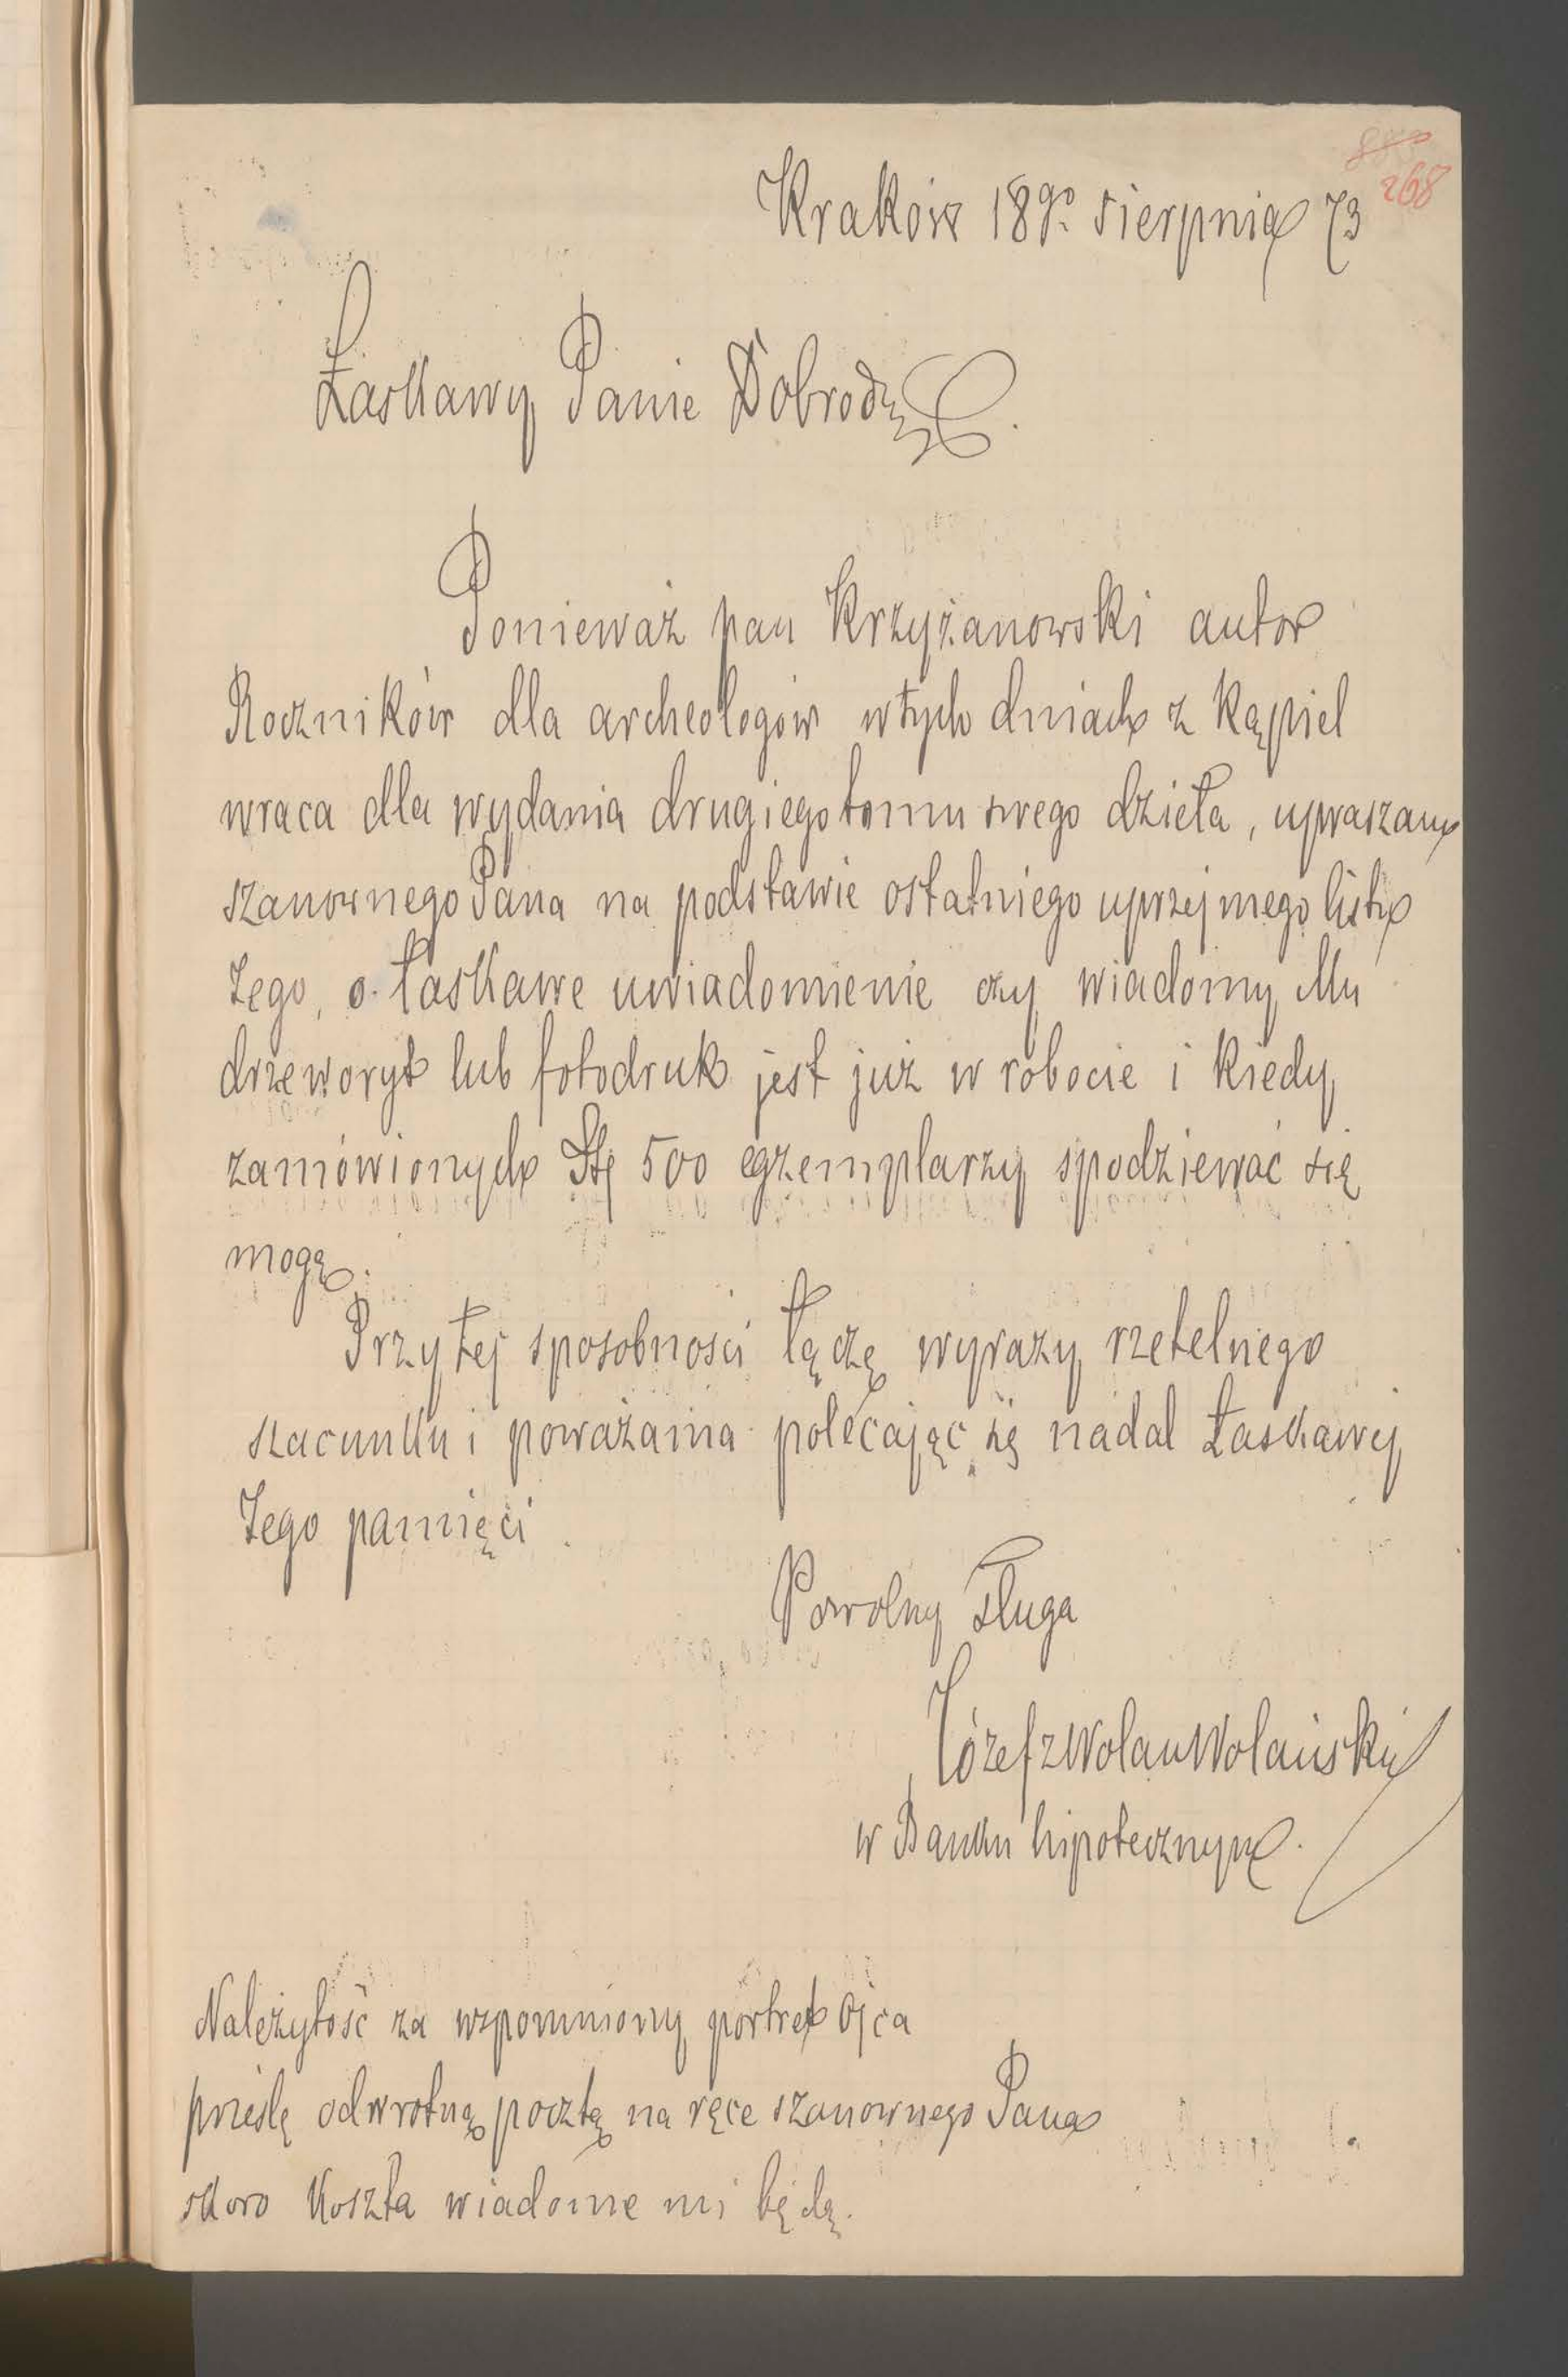 268
Kraków 18go. sierpnia 73
Łaskawy Panie Dobrodz.
Ponieważ pan Krzyżanowski autor
Roczników dla archeologów w tych dniach z kąpiel
wraca dla wydania drugiego tomu swego dzieła, upraszam
szanownego Pana na podstawie ostatniego uprzejmego listu
Jego, o łaskawe uwiadomienie czy wiadomy Mu
drzeworyt lub fotodruk jest już w robocie i kiedy
zamówionych 500 egzemplarzy spodziewać się
mogę.
Przy tej sposobności łączę wyrazy rzetelnego
szacunku i poważania polecając się nadal Łaskawej
Jego pamięci.
Powolny sługa
Józef z Wolan Wolański
w Banku hipotecznym.
Należytość za wspomniony portret Ojca
prześlę odwrotną pocztą na ręce szanownego Pana
skoro koszta wiadome mi będą.